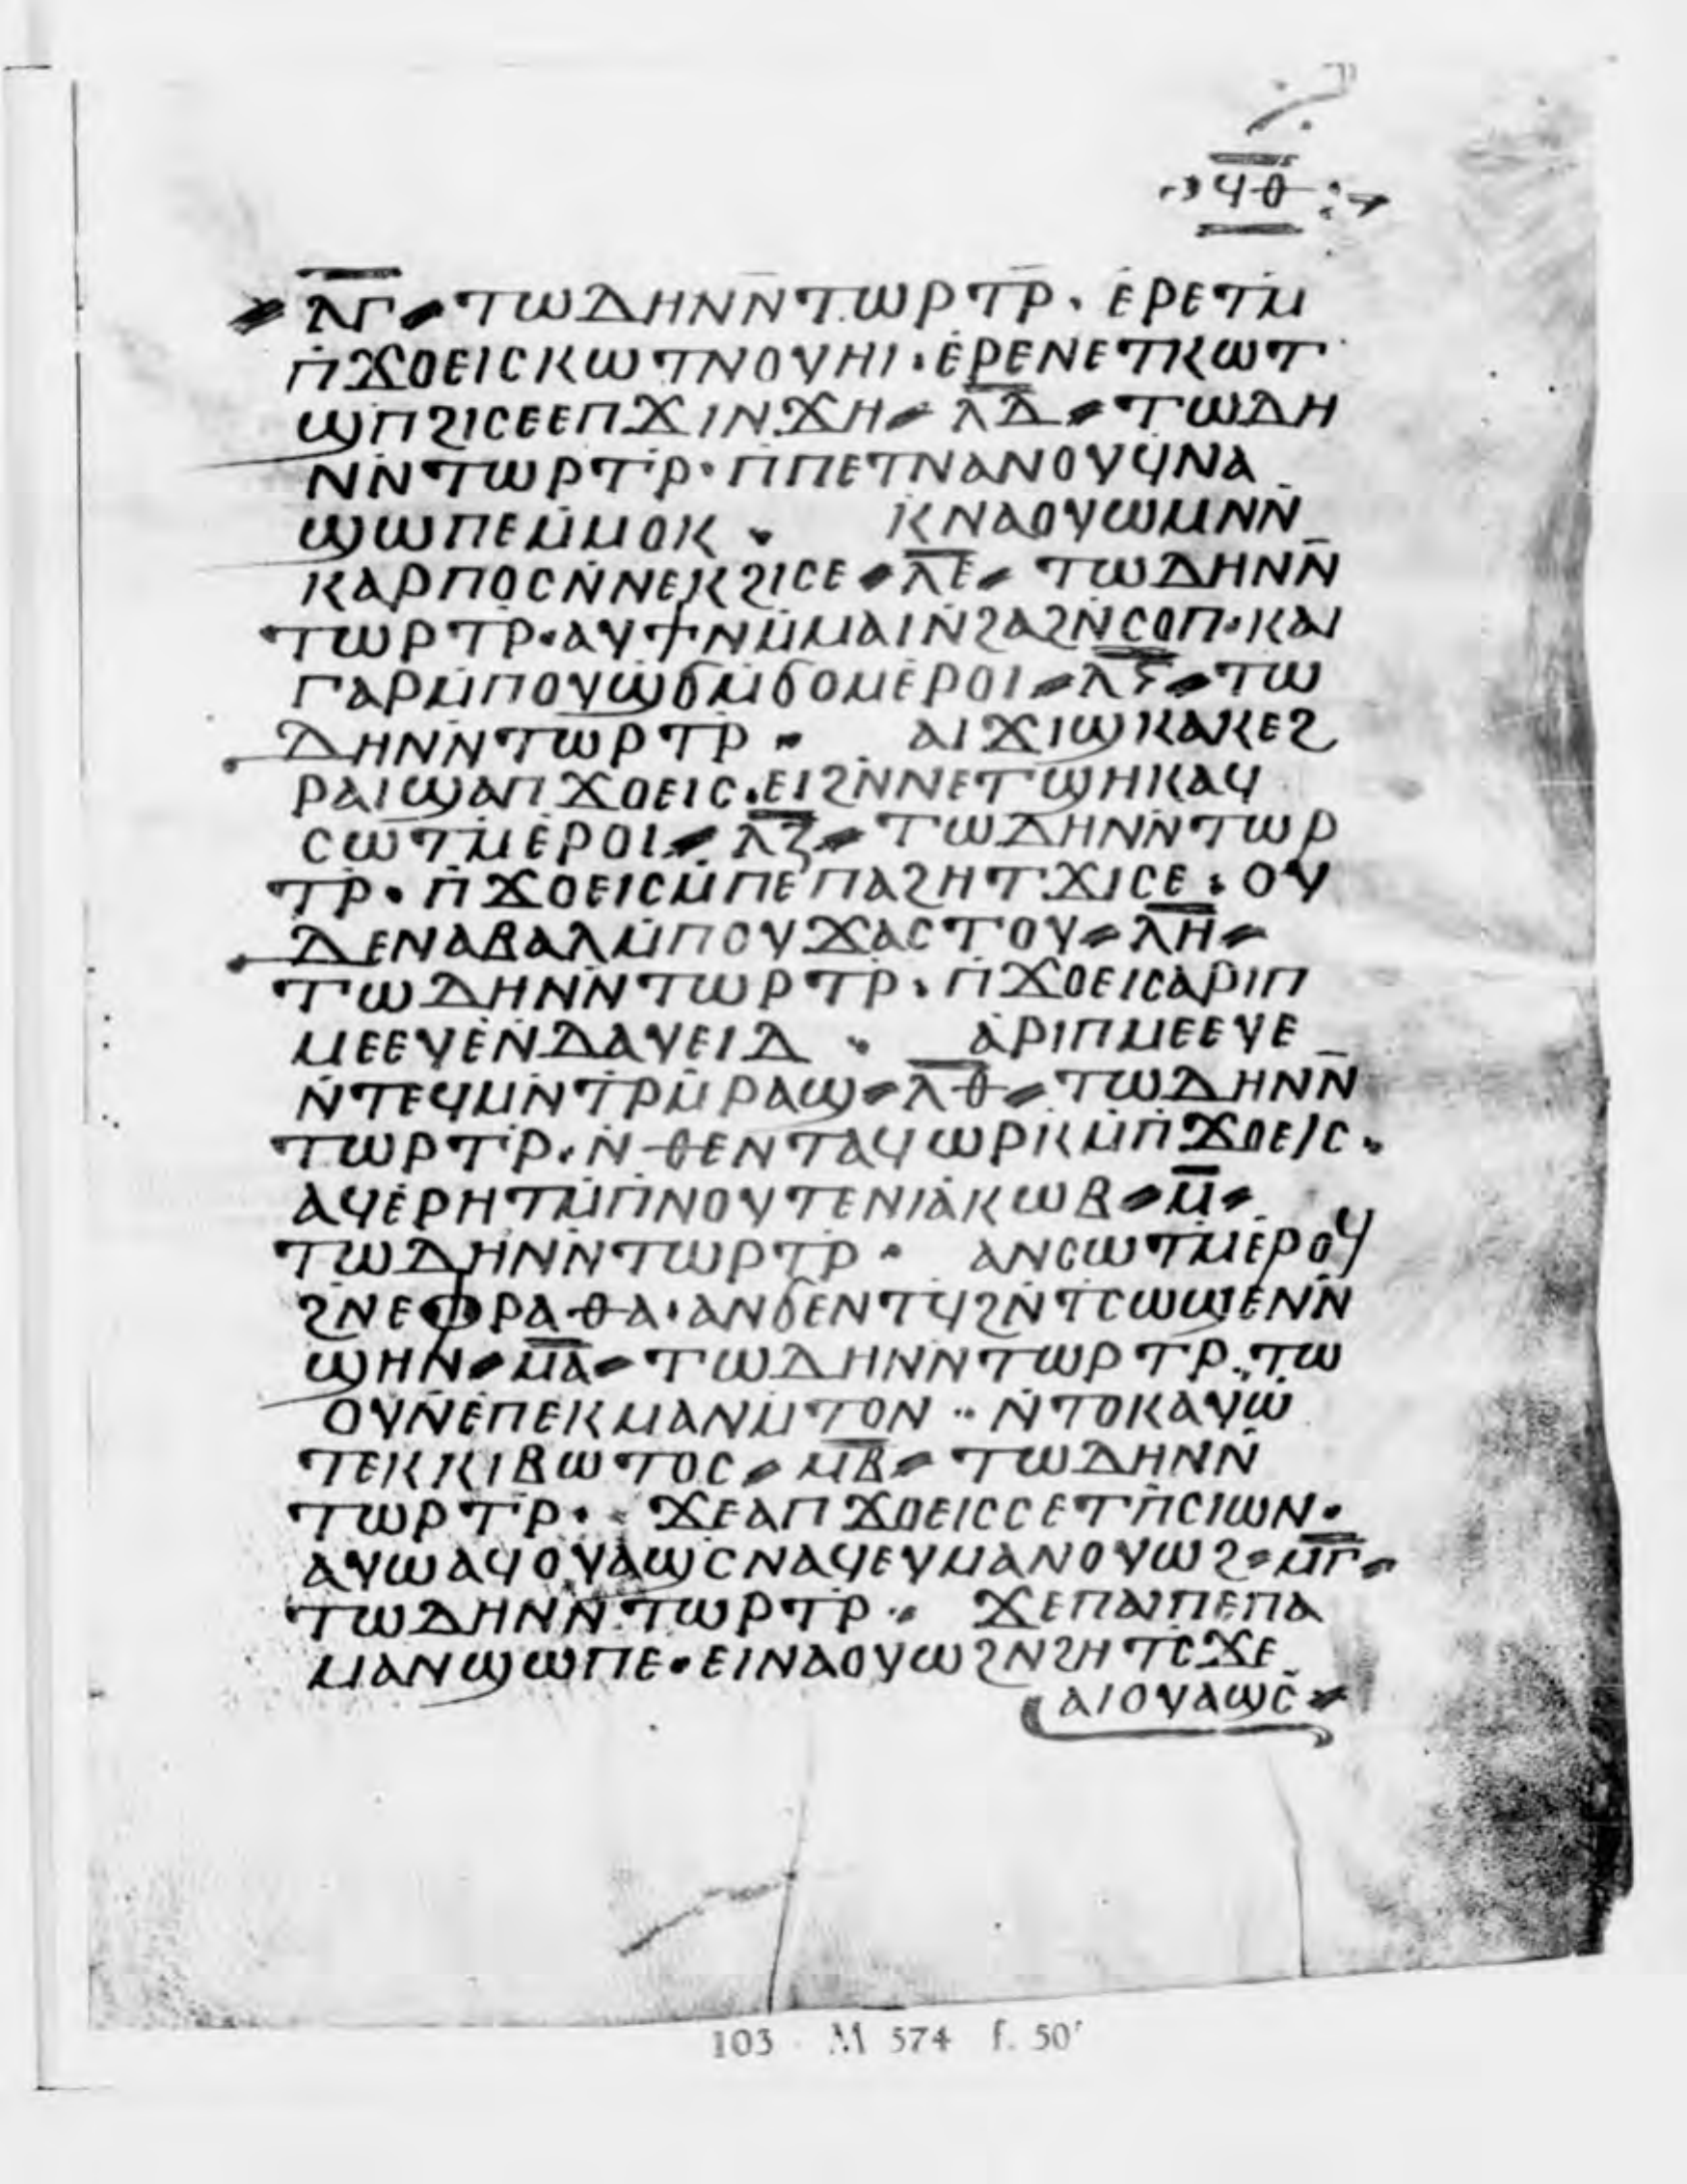 ϥⲑ
ⲗⲅ ⲧⲱⲇⲏⲛⲛ̇ⲧⲱⲣⲧⲣ̄· ⲉ̇ⲣⲉⲧⲙ̇
ⲡ̇ϫⲟⲉⲓⲥⲕⲱⲧⲛⲟⲩⲏⲓ· ⲉ̇ⲣⲉⲛⲉⲧⲕⲱⲧ
ϣⲡϩⲓⲥⲉⲉⲡϫⲓⲛϫⲏ ⲗⲇ ⲧⲱⲇⲏ
ⲛⲛ̇ⲧⲱⲣⲧⲣ̇· ⲡ̇ⲡⲉⲧⲛⲁⲛⲟⲩϥⲛⲁ
ϣⲱⲡⲉⲙ̇ⲙⲟⲕ · ⲕⲛⲁⲟⲩⲱⲙⲛⲛ̇
ⲕⲁⲣⲡⲟⲥⲛ̇ⲛⲉⲕϩⲓⲥⲉ ⲗⲉ̄ ⲧⲱⲇⲏⲛⲛ̇
ⲧⲱⲣⲧⲣ̇· ⲁⲩϯⲛⲙ̇ⲙⲁⲓⲛ̇ϩⲁϩⲛ̇ⲥⲟⲡ· ⲕⲁⲓ
ⲅⲁⲣⲙ̇ⲡⲟⲩϣϭⲙ̇ϭⲟⲙⲉ̇ⲣⲟⲓ ⲗⲋ ⲧⲱ
ⲇⲏⲛⲛ̇ⲧⲱⲣⲧⲣ̇ · ⲁⲓϫⲓϣⲕⲁⲕⲉϩ
ⲣⲁⲓϣⲁⲡϫⲟⲉⲓⲥ· ⲉⲓϩⲛⲛⲉⲧϣⲏⲕⲁϥ
ⲥⲱⲧⲙ̇ⲉ̇ⲣⲟⲓ ⲗⲍ ⲧⲱⲇⲏⲛⲛ̇ⲧⲱⲣ
ⲧⲣ̇· ⲡ̇ϫⲟⲉⲓⲥⲙ̇ⲡⲉⲡⲁϩⲏⲧϫⲓⲥⲉ· ⲟⲩ
ⲇⲉⲛⲁⲃⲁⲗⲙ̇ⲡⲟⲩϫⲁⲥⲧⲟⲩ ⲗⲏ
ⲧⲱⲇⲏⲛⲛ̇ⲧⲱⲣⲧⲣ̇· ⲡ̇ϫⲟⲉⲓⲥⲁⲣⲓⲡ
ⲙⲉⲉⲩⲉ̇ⲛ̇ⲇⲁⲩⲉⲓⲇ · ⲁ̇ⲣⲓⲡⲙⲉⲉⲩⲉ
ⲛ̇ⲧⲉϥⲙⲛ̇ⲧⲣ̇ⲙ̇ⲣⲁϣ ⲗⲑ ⲧⲱⲇⲏⲛⲛ̇
ⲧⲱⲣⲧⲣ̇· ⲛ̇ⲑⲉⲛⲧⲁϥⲱⲣⲕⲙ̇ⲡ̇ϫⲟⲉⲓⲥ·
ⲁϥⲉ̇ⲣⲏⲧⲙ̇ⲡ̇ⲛⲟⲩⲧⲉⲛⲓⲁ̇ⲕⲱⲃ ⲙ̄
ⲧⲱⲇⲏⲛⲛ̇ⲧⲱⲣⲧⲣ̇ · ⲁⲛⲥⲱⲧⲙ̇ⲉⲣⲟϥ
ϩⲛⲉⲫⲣⲁⲑⲁ· ⲁⲛϭⲉⲛⲧϥϩⲛ̇ⲧⲥⲱϣⲉⲛⲛ̇
ϣⲏⲛ ⲙⲁ̄ ⲧⲱⲇⲏⲛⲛ̇ⲧⲱⲣⲧⲣ̇· ⲧⲱ
ⲟⲩⲛ̇ⲉ̇ⲡⲉⲕⲙⲁⲛⲙ̇ⲧⲟⲛ ·· ⲛ̇ⲧⲟⲕⲁⲩⲱ
ⲧⲉⲕⲕⲓⲃⲱⲧⲟⲥ ⲙⲃ̄ ⲧⲱⲇⲏⲛⲛ̇
ⲧⲱⲣⲧⲣ̇· ϫⲉⲁⲡϫⲟⲉⲓⲥⲥⲉⲧⲡ̇ⲥⲓⲱⲛ·
ⲁⲩⲱⲁϥⲟⲩⲁϣⲥⲛⲁϥⲉⲩⲙⲁⲛⲟⲩⲱϩ ⲙⲅ̄
ⲧⲱⲇⲏⲛⲛ̇ⲧⲱⲣⲧⲣ̇ · ϫⲉⲡⲁⲓⲡⲉⲡⲁ
ⲙⲁⲛϣⲱⲡⲉ· ⲉⲓⲛⲁⲟⲩⲱϩⲛϩⲏⲧⲥ̇ϫⲉ
ⲁⲓⲟⲩⲁϣⲥ̇
103 · M 574 f. 50ʳ